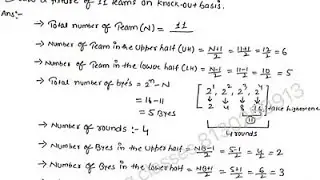 a fixture of 11 teams on knock-out basis.
Ans:-
→ Total number of Team (N) = 11
→ Number of Team in the Upper half (UH) = N+1/2 = 11+1/2 = 12/2 = 6
→ Number of Team in the lower half (LH) = N-1/2 = 11-1/2 = 10/2 = 5
→ Total number of byes = 2ⁿ-N
= 16-11
= 5 Byes
[2¹, 2², 2³, 2⁴]
2 4 8 16 take higher one
4 rounds
→ Number of rounds :- 4
→ Number of Byes in the upper half = NB-1/2 = 5-1/2 = 4/2 = 2
→ Number of Byes in the lower half = NB+1/2 = 5+1/2 = 6/2 = 3